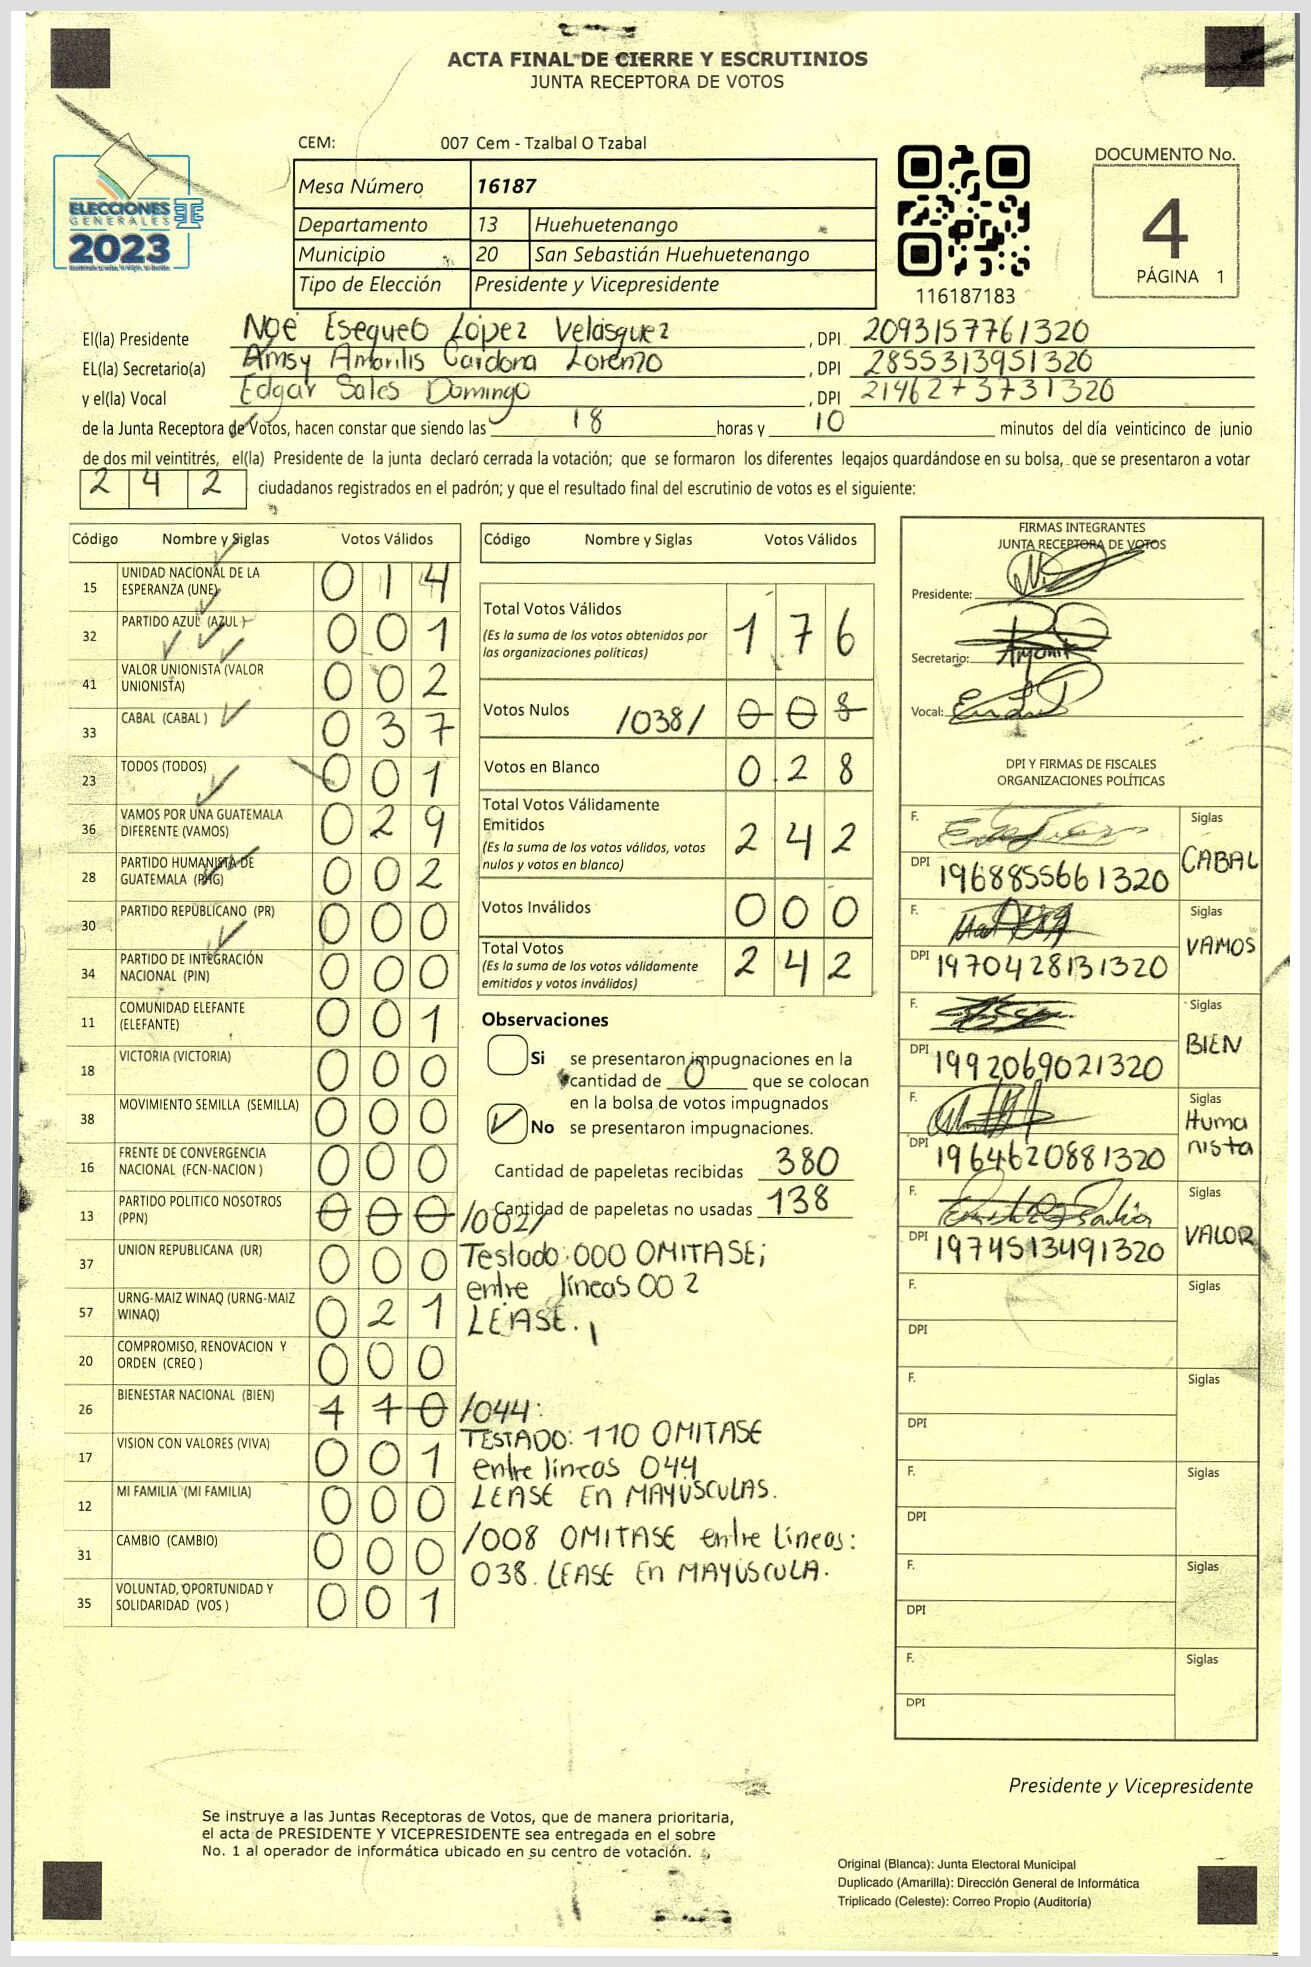 ACTA FINAL DE CIERRE Y ESCRUTINIOS
JUNTA RECEPTORA DE VOTOS
ELECCIONES
GENERALES
2023
CEM: 007 Cem - Tzalbal O Tzabal
Mesa Número 16187
Departamento 13 Huehuetenango
Municipio 20 San Sebastián Huehuetenango
Tipo de Elección Presidente y Vicepresidente
116187183
DOCUMENTO No.
4
PÁGINA 1
El(la) Presidente Noé Esequeo López Velásquez , DPI 2093157761320
EL(la) Secretario(a) Amsy Amarilis Cardona Lorenzo , DPI 2855313951320
y el(la) Vocal Edgar Sales Domingo , DPI 2146273731320
de la Junta Receptora de Votos, hacen constar que siendo las 18 horas y 10 minutos del día veinticinco de junio
de dos mil veintitrés, el(la) Presidente de la junta declaró cerrada la votación; que se formaron los diferentes legajos quardándose en su bolsa, que se presentaron a votar
2 4 2 ciudadanos registrados en el padrón; y que el resultado final del escrutinio de votos es el siguiente:
Código Nombre y Siglas Votos Válidos
15 UNIDAD NACIONAL DE LA ESPERANZA (UNE) 0 1 4
32 PARTIDO AZUL (AZUL ) 0 0 1
41 VALOR UNIONISTA (VALOR UNIONISTA) 0 0 2
33 CABAL (CABAL ) 0 3 7
23 TODOS (TODOS) 0 0 1
36 VAMOS POR UNA GUATEMALA DIFERENTE (VAMOS) 0 2 9
28 PARTIDO HUMANISTA DE GUATEMALA (PHG) 0 0 2
30 PARTIDO REPUBLICANO (PR) 0 0 0
34 PARTIDO DE INTEGRACIÓN NACIONAL (PIN) 0 0 0
11 COMUNIDAD ELEFANTE (ELEFANTE) 0 0 1
18 VICTORIA (VICTORIA) 0 0 0
38 MOVIMIENTO SEMILLA (SEMILLA) 0 0 0
16 FRENTE DE CONVERGENCIA NACIONAL (FCN-NACION ) 0 0 0
13 PARTIDO POLITICO NOSOTROS (PPN) 0 0 0 /002/
37 UNION REPUBLICANA (UR) 0 0 0
57 URNG-MAIZ WINAQ (URNG-MAIZ WINAQ) 0 2 1
20 COMPROMISO, RENOVACION Y ORDEN (CREO ) 0 0 0
26 BIENESTAR NACIONAL (BIEN) 1 1 0 /044:
17 VISION CON VALORES (VIVA) 0 0 1
12 MI FAMILIA (MI FAMILIA) 0 0 0
31 CAMBIO (CAMBIO) 0 0 0
35 VOLUNTAD, OPORTUNIDAD Y SOLIDARIDAD (VOS ) 0 0 1
Código Nombre y Siglas Votos Válidos
Total Votos Válidos 1 7 6
(Es la suma de los votos obtenidos por
las organizaciones políticas)
Votos Nulos /038/ 0 0 8
Votos en Blanco 0 2 8
Total Votos Válidamente
Emitidos 2 4 2
(Es la suma de los votos válidos, votos
nulos y votos en blanco)
Votos Inválidos 0 0 0
Total Votos 2 4 2
(Es la suma de los votos válidamente
emitidos y votos inválidos)
Observaciones
Si se presentaron impugnaciones en la
cantidad de 0 que se colocan
en la bolsa de votos impugnados
No se presentaron impugnaciones.
Cantidad de papeletas recibidas 380
Cantidad de papeletas no usadas 138
Testado 000 OMITASE;
entre líneas 00 2
LEASE.
TESTADO: 110 OMITASE
entre líneas 044
LEASE EN MAYUSCULAS.
/008 OMITASE entre Líneas:
038. LEASE En MAYUSCULA.
FIRMAS INTEGRANTES
JUNTA RECEPTORA DE VOTOS
Presidente:
Secretario:
Vocal:
DPI Y FIRMAS DE FISCALES
ORGANIZACIONES POLÍTICAS
F. Siglas
DPI 1968855661320 CABAL
F. Siglas
DPI 1970428131320 VAMOS
F. Siglas
DPI 1992069021320 BIEN
F. Siglas
DPI 1964620881320 Humanista
F. Siglas
DPI 1974513491320 VALOR
F. Siglas
DPI
F. Siglas
DPI
F. Siglas
DPI
F. Siglas
DPI
F. Siglas
DPI
Presidente y Vicepresidente
Se instruye a las Juntas Receptoras de Votos, que de manera prioritaria,
el acta de PRESIDENTE Y VICEPRESIDENTE sea entregada en el sobre
No. 1 al operador de informática ubicado en su centro de votación.
Original (Blanca): Junta Electoral Municipal
Duplicado (Amarilla): Dirección General de Informática
Triplicado (Celeste): Correo Propio (Auditoría)